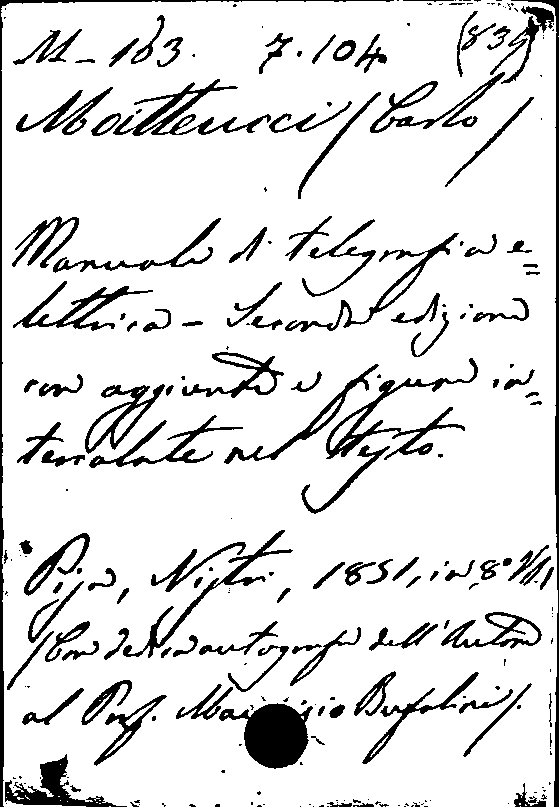 M-103. 7.104 (839)
Matteucci (Carlo)
Manuale di telegrafia e=
lettrica - Seconda edizione
con aggiunte e figure in=
tercalate nel testo.
Pisa, Nistri, 1851, in 8° VIII,
(Con dedica autografa dell'Autore
al Prof. Maurizio Bufalini).